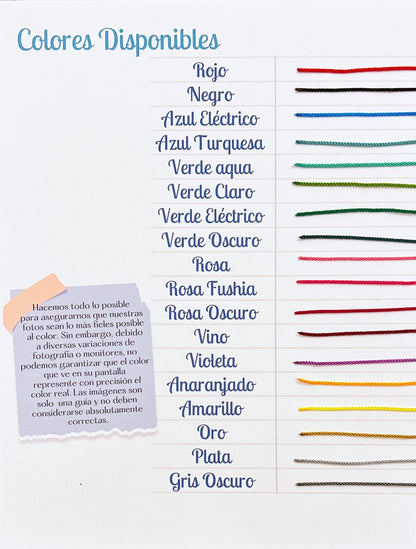 Colores Disponibles
Rojo
Negro
Azul Eléctrico
Azul Turquesa
Verde aqua
Verde Claro
Verde Eléctrico
Verde Oscuro
Rosa
Rosa Fushia
Rosa Oscuro
Vino
Violeta
Anaranjado
Amarillo
Oro
Plata
Gris Oscuro
Hacemos todo lo posible
para asegurarnos que nuestras
fotos sean lo más fieles posible
al color. Sin embargo, debido
a diversas variaciones de
fotografía o monitores, no
podemos garantizar que el color
que ve en su pantalla
represente con precisión el
color real. Las imágenes son
solo una guía y no deben
considerarse absolutamente
correctas.